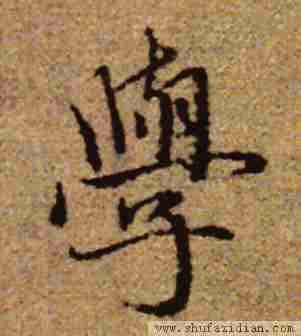 學
www.shufazidian.com